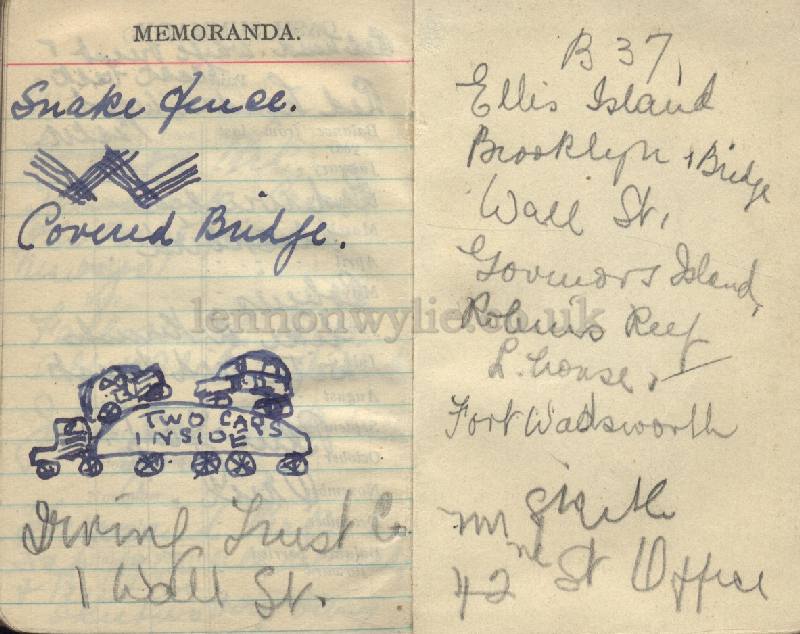 MEMORANDA.
Snake fence.
Covered Bridge.
TWO CARS
INSIDE
Irving Trust Co
1 Wall St.
B 37,
Ellis Island
Brooklyn + Bridge
Wall St,
Govenors Island,
Robins Reef
L. house,
Fort Wadsworth
Mr
42 St Office
lennonwylie.co.uk